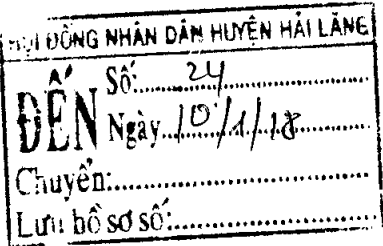 HỘI ĐỒNG NHÂN DÂN HUYỆN HẢI LĂNG
ĐẾN Số: 24
Ngày 10/1/18
Chuyển:
Lưu hồ sơ số: